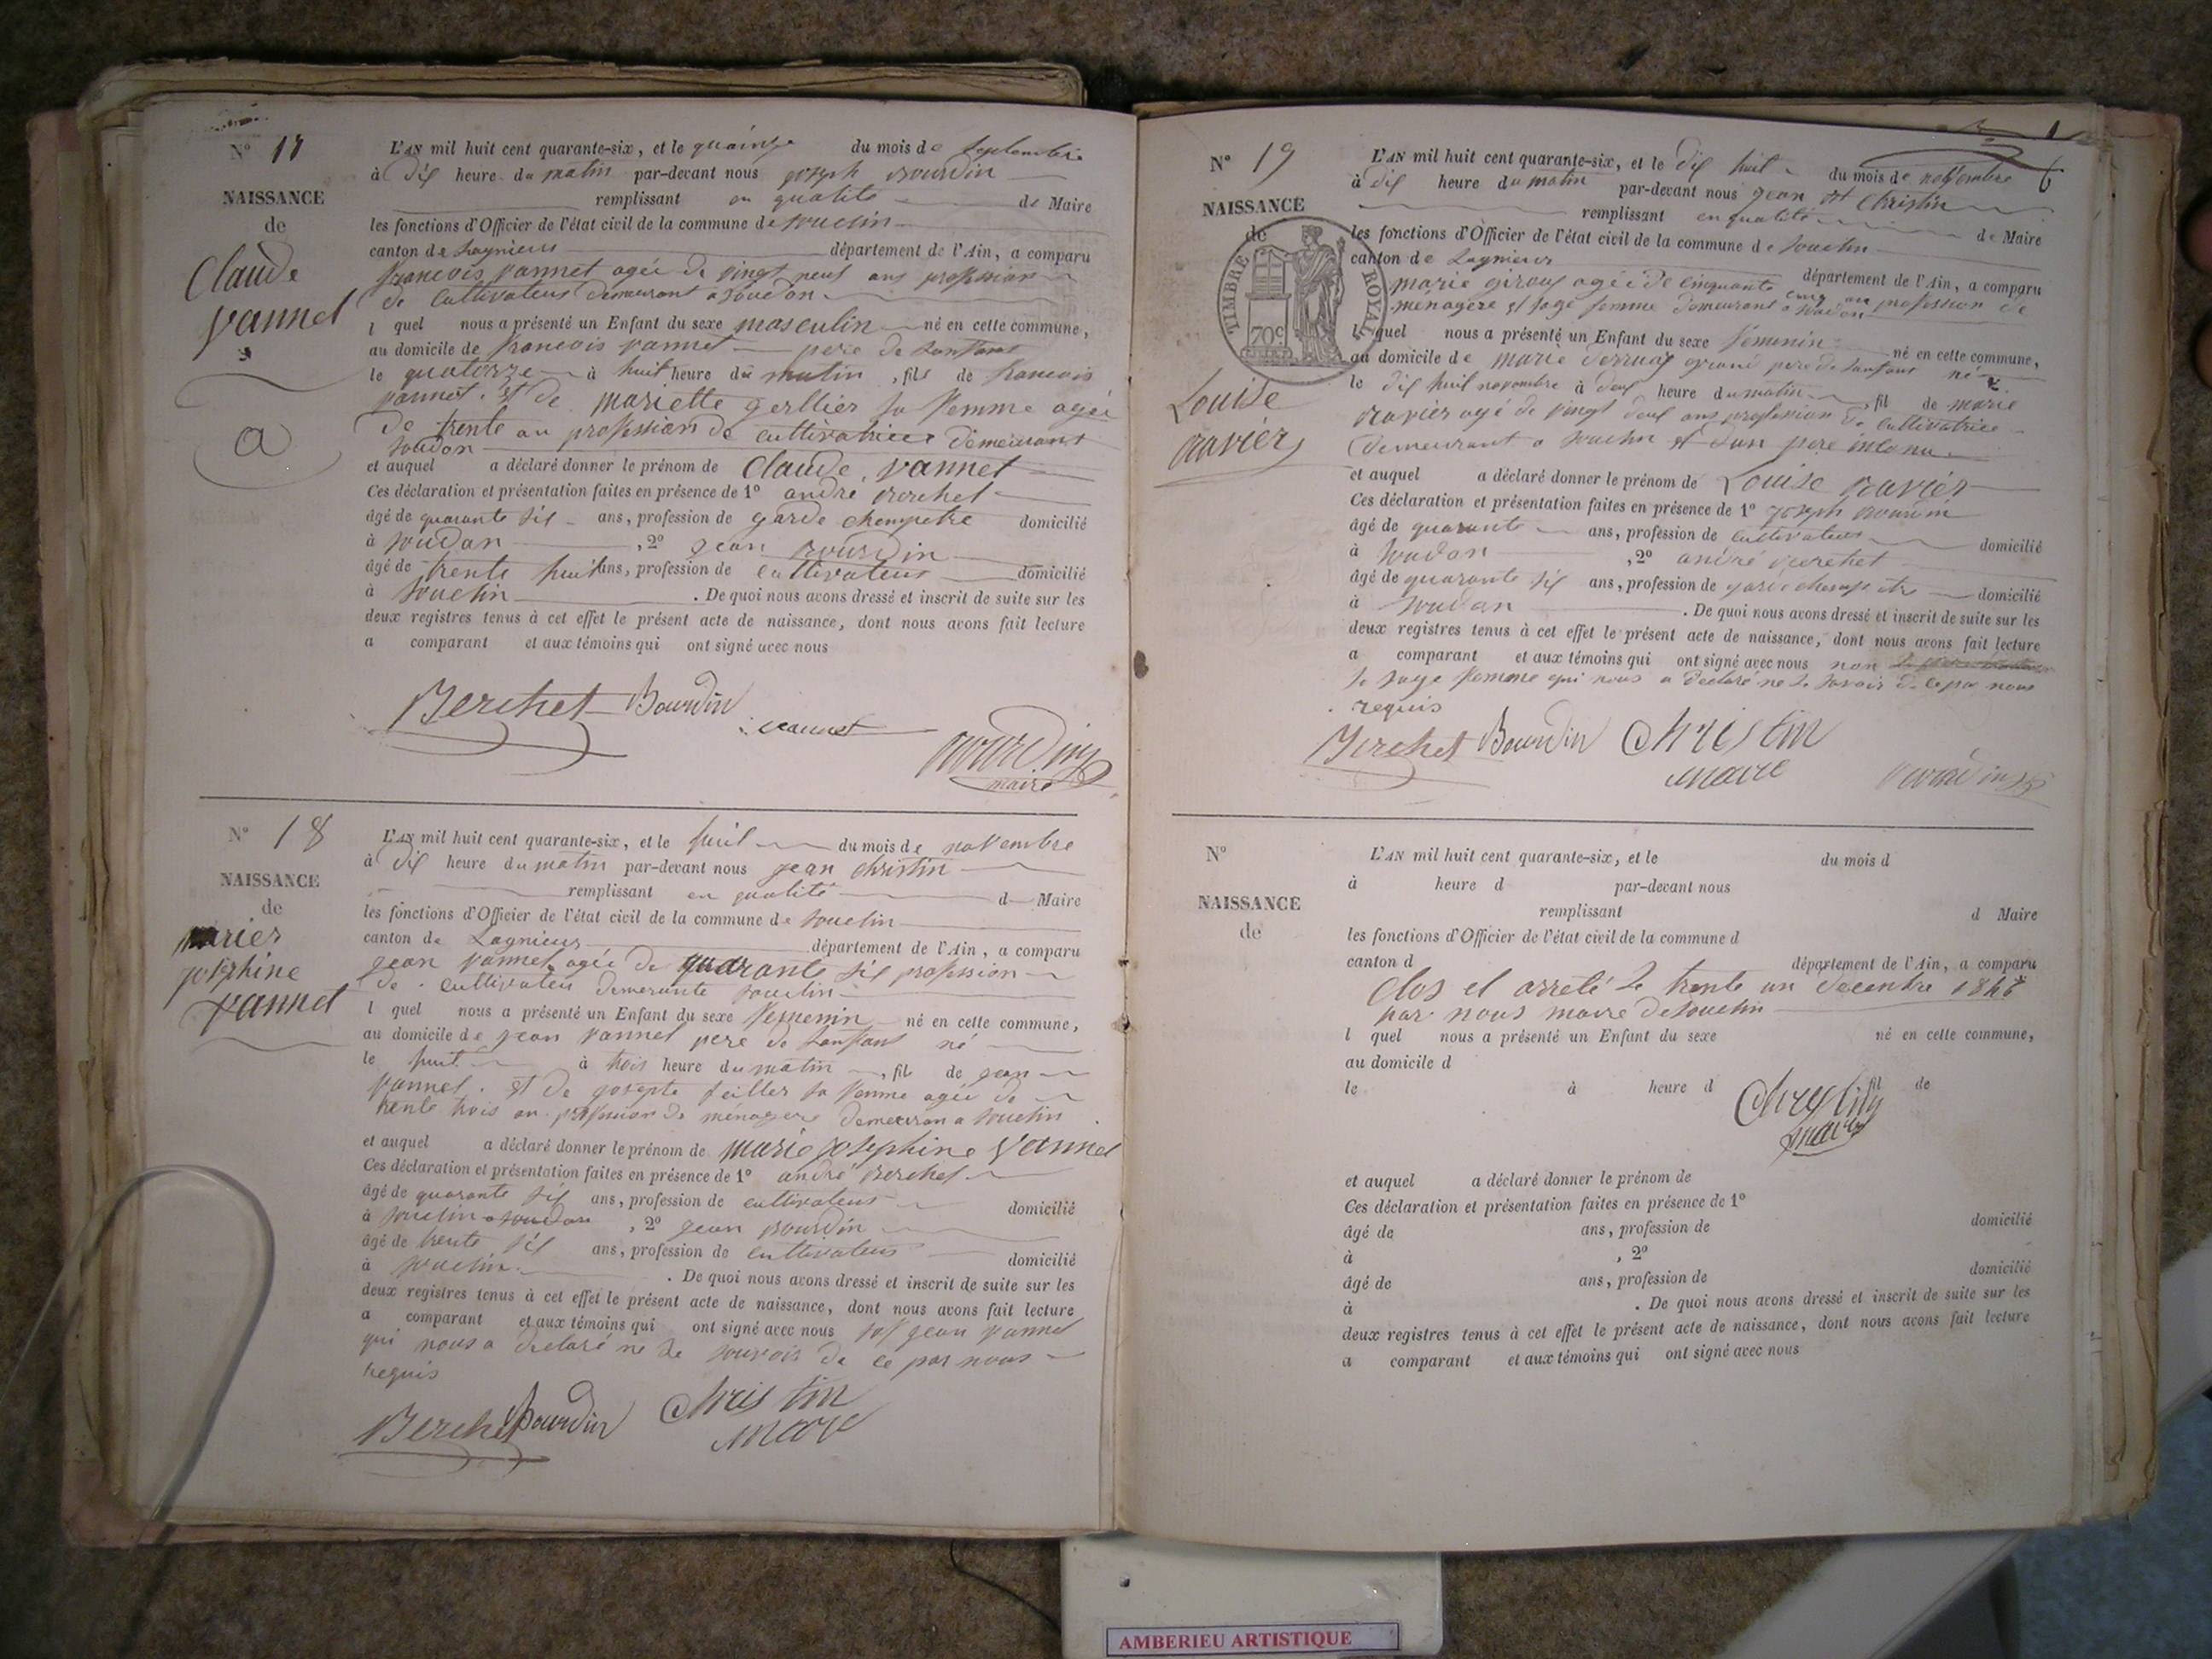 N° 17
NAISSANCE
de
Claude
vannet
a
L'AN mil huit cent quarante-six, et le quainze du mois de septembre
à dix heure du matin par-devant nous joseph Bourdin
remplissant en qualité de Maire
les fonctions d'Officier de l'état civil de la commune de souclin
canton de Lagnieu département de l'Ain, a comparu
francois vannet agée de vingt neuf ans profession
de cultivateur demeurant a soudon
l quel nous a présenté un Enfant du sexe masculin né en cette commune,
au domicile de francois vannet pere de lanfant
le quatorze à huit heure du matin, fils de francois
vannet. et de mariette gerllier sa femme agée
de trente an profession de cultivatrice demeurant
soudon
et auquel a déclaré donner le prénom de Claude, vannet
Ces déclaration et présentation faites en présence de 1° andré Berchet
âgé de quarante six ans, profession de garde champetre domicilié
à soudon, 2° jean Bourdin
âgé de trente huit ans, profession de cultivateur domicilié
à souclin. De quoi nous avons dressé et inscrit de suite sur les
deux registres tenus à cet effet le présent acte de naissance, dont nous avons fait lecture
a comparant et aux témoins qui ont signé avec nous
Berchet Bourdin vannet
Bourdin
maire
N° 18
NAISSANCE
de
marie
josephine
vannet
L'AN mil huit cent quarante-six, et le huit du mois de novembre
à dix heure du matin par-devant nous jean christin
remplissant en qualité d Maire
les fonctions d'Officier de l'état civil de la commune de souclin
canton de Lagnieu département de l'Ain, a comparu
jean vannet agée de quarante six profession
de cultivateu demeurante souclin
l quel nous a présenté un Enfant du sexe femenin né en cette commune,
au domicile de jean vannet pere de lanfant né
le huit à trois heure du matin, fil de jean
vannet. et de josepte feilles sa femme agée de
trente trois an profession de ménagere demeuran a souclin
et auquel a déclaré donner le prénom de marie josephine vannet
Ces déclaration et présentation faites en présence de 1° andré Berchet
âgé de quarante six ans, profession de cultivateur domicilié
à souclin a soudon, 2° jean Bourdin
âgé de trente six ans, profession de cultivateur domicilié
à souclin. De quoi nous avons dressé et inscrit de suite sur les
deux registres tenus à cet effet le présent acte de naissance, dont nous avons fait lecture
a comparant et aux témoins qui ont signé avec nous jean vannet
qui nous a declaré ne le de ce par nous
requis
Berchet Bourdin Christin
maire
N° 19
NAISSANCE
de
TIMBRE ROYAL
70c
Louise
ravier
L'AN mil huit cent quarante-six, et le dix huit du mois de novembre
à dix heure du matin par-devant nous jean christin
remplissant en qualité de Maire
les fonctions d'Officier de l'état civil de la commune de souclin
canton de Lagnieu département de l'Ain, a comparu
marie giroux agée de cinquante cinq an profession de
menagere et sage femme demeurant a soudon
l quel nous a présenté un Enfant du sexe féminin né en cette commune,
au domicile de marie grand pere de lanfant né
le dix huit novembre à deux heure du matin, fil de marie
ravier agé de vingt deux ans profession de cultivatrice
demeurant a souclin et dun pere inconu
et auquel a déclaré donner le prénom de Louise ravier
Ces déclaration et présentation faites en présence de 1° joseph Bourdin
âgé de quarante ans, profession de cultivateur domicilié
à soudon, 2° andré Berchet
âgé de quarante six ans, profession de garde champetre domicilié
à soudon. De quoi nous avons dressé et inscrit de suite sur les
deux registres tenus à cet effet le présent acte de naissance, dont nous avons fait lecture
a comparant et aux témoins qui ont signé avec nous non
la sage femme qui nous a declaré ne le savoir de ce par nous
requis
Berchet Bourdin Christin
maire
Bourdin
N°
NAISSANCE
de
L'AN mil huit cent quarante-six, et le du mois d
à heure d par-devant nous
remplissant d Maire
les fonctions d'Officier de l'état civil de la commune d
canton d département de l'Ain, a comparu
Clos et arreté le trente un decentre 1846
par nous maire de souclin
l quel nous a présenté un Enfant du sexe né en cette commune,
au domicile d
le à heure d fil de
Christin
maire
et auquel a déclaré donner le prénom de
Ces déclaration et présentation faites en présence de 1°
âgé de ans, profession de domicilié
à , 2°
âgé de ans, profession de domicilié
à . De quoi nous avons dressé et inscrit de suite sur les
deux registres tenus à cet effet le présent acte de naissance, dont nous avons fait lecture
a comparant et aux témoins qui ont signé avec nous
AMBERIEU ARTISTIQUE